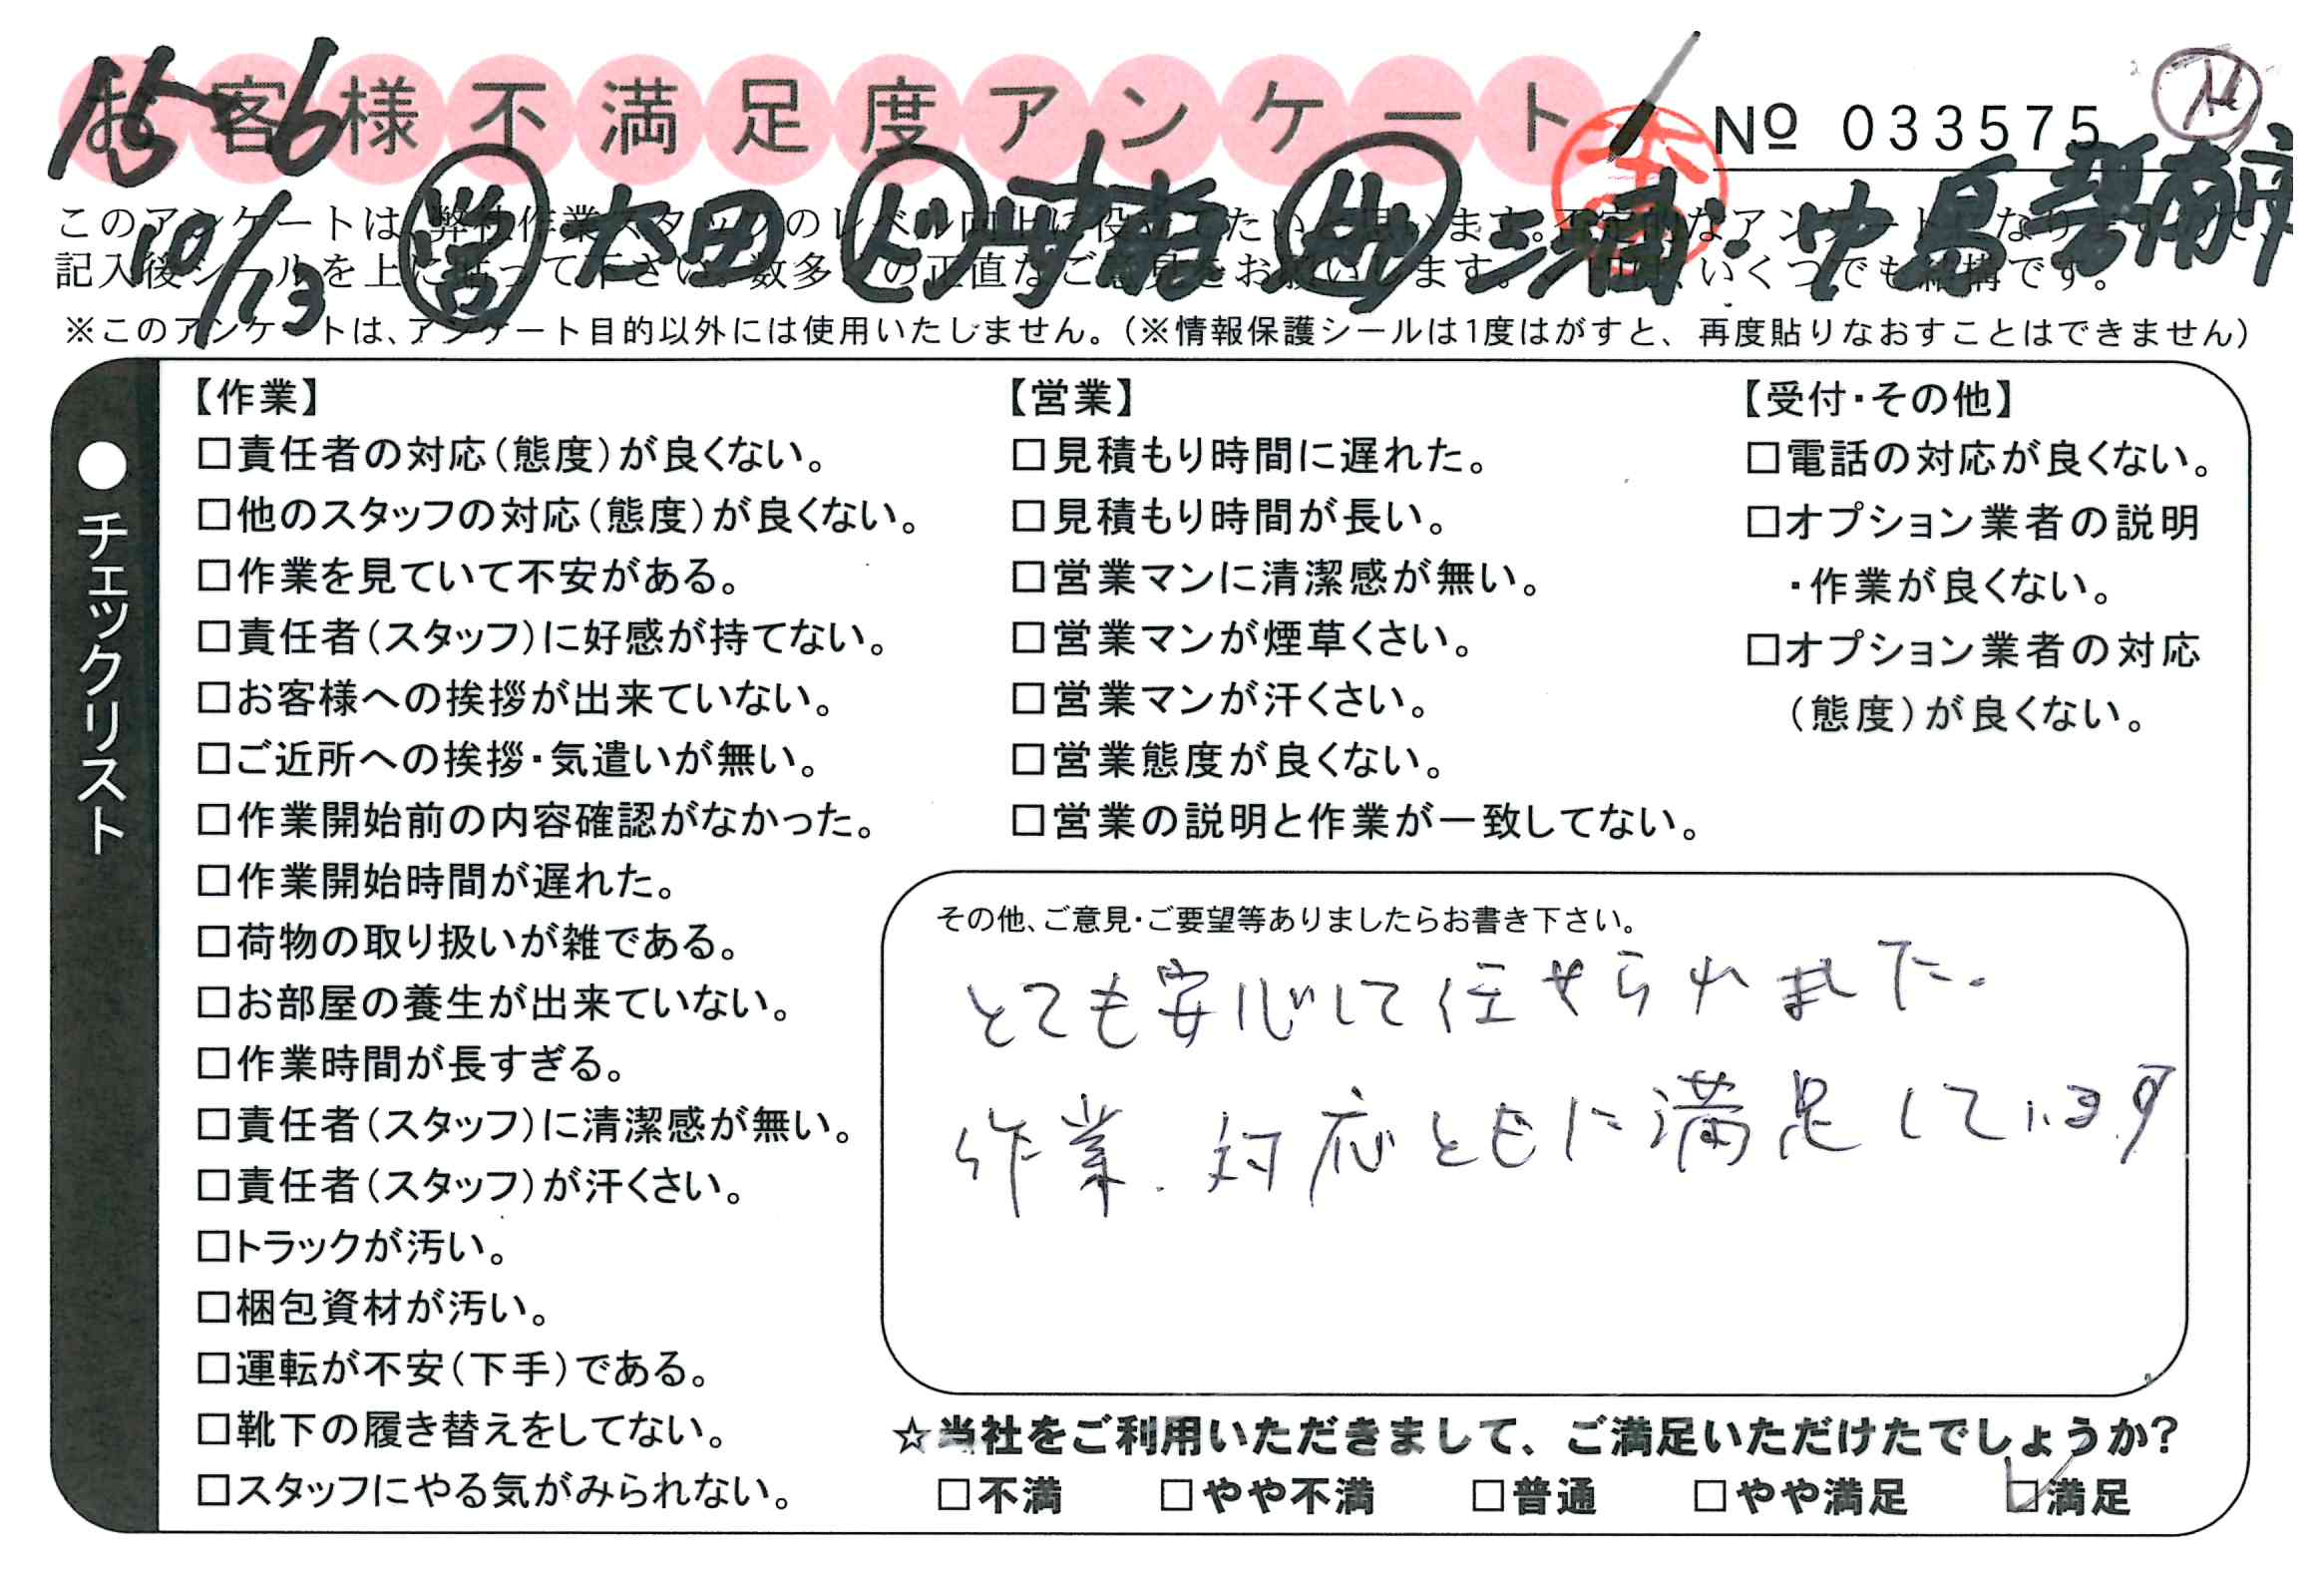 お客様不満足度アンケート
15-6
No 033575
10/13 営 太田 ド 三浦・中島
このアンケートは、弊社作業スタッフのレベル向上に役立てたいと思います。
記入後シールを上に貼って下さい。数多くの正直なご意見をお願いします。いくつでも結構です。
※このアンケートは、アンケート目的以外には使用いたしません。（※情報保護シールは1度はがすと、再度貼りなおすことはできません）
●チェックリスト
【作業】
□責任者の対応（態度）が良くない。
□他のスタッフの対応（態度）が良くない。
□作業を見ていて不安がある。
□責任者（スタッフ）に好感が持てない。
□お客様への挨拶が出来ていない。
□ご近所への挨拶・気遣いが無い。
□作業開始前の内容確認がなかった。
□作業開始時間が遅れた。
□荷物の取り扱いが雑である。
□お部屋の養生が出来ていない。
□作業時間が長すぎる。
□責任者（スタッフ）に清潔感が無い。
□責任者（スタッフ）が汗くさい。
□トラックが汚い。
□梱包資材が汚い。
□運転が不安（下手）である。
□靴下の履き替えをしてない。
□スタッフにやる気がみられない。
【営業】
□見積もり時間に遅れた。
□見積もり時間が長い。
□営業マンに清潔感が無い。
□営業マンが煙草くさい。
□営業マンが汗くさい。
□営業態度が良くない。
□営業の説明と作業が一致してない。
【受付・その他】
□電話の対応が良くない。
□オプション業者の説明
・作業が良くない。
□オプション業者の対応
（態度）が良くない。
その他、ご意見・ご要望等ありましたらお書き下さい。
とても安心して任せられました.
作業、対応ともに満足しています
☆当社をご利用いただきまして、ご満足いただけたでしょうか？
□不満 □やや不満 □普通 □やや満足 ☑満足